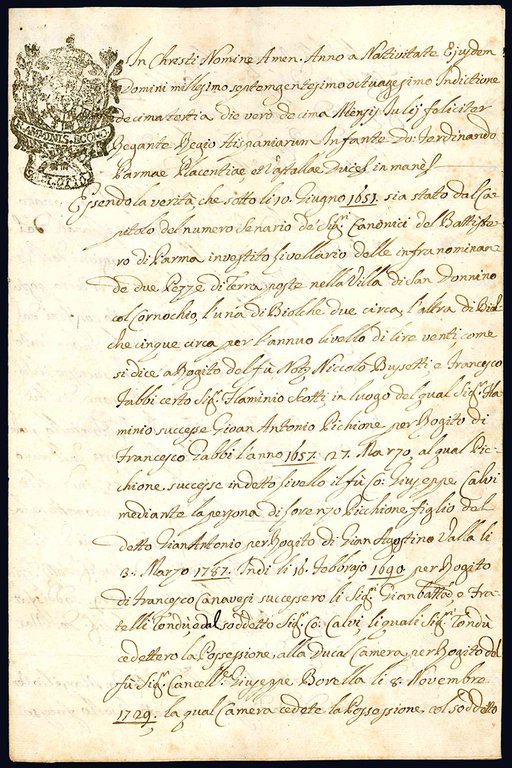 In Christi Nomine Amen. Anno a Nattivitate Ejusdem
Domini millesimo septemgentesimo octuagesimo Indictione
decimatertia die verò decima Mensis Julij feliciter
Regante Regio Hispaniarum Infante Do: Ferdinando
Parmae Placentiae et Vastallae Duces in manes
Essendo la verità che sotto li 10. Giugno 1651. sia stato dal Ca=
pitolo del numero Senario de' Sig:ri Canonici del Battiste=
ro di Parma investito livellario delle infranominan=
de due Pezze di Terra poste nella Villa di San Donnino
col Cornochio, l'una di Biolche due circa, l'altra di Biol=
che cinque circa per l'annuo livello di lire venti come
si dice a Rogito del fù Not:o Niccolò Busetti e Francesco
Gabbi certo Sig:r Flaminio Scotti, in luogo del qual Sig:r Fla=
minio successe Gioan Antonio Pichione per Rogito di
Francesco Gabbi l'anno 1657. 27. Marzo, al qual Pic=
chione successe in detto livello il fù Co: Giuseppe Calvi
mediante la persona di Lorenzo Picchione figlio del
detto Gian Antonio per Rogito di Gian Agostino Valla li
3. Marzo 1787. Indi li 16. Febbrajo 1690 per Rogito
di Francesco Canavesi successero li Sig:ri Gianbatta e Fra=
telli Tondù dal soddetto Sig:r Co: Calvi, li quali Sig:ri Tondù
cedettero la Possessione alla Ducal Camera, per Rogito del
fù Sig:r Cancell:re Giuseppe Borella li 8. Novembre
1729. la qual Camera cedete la Possessione col soddetto